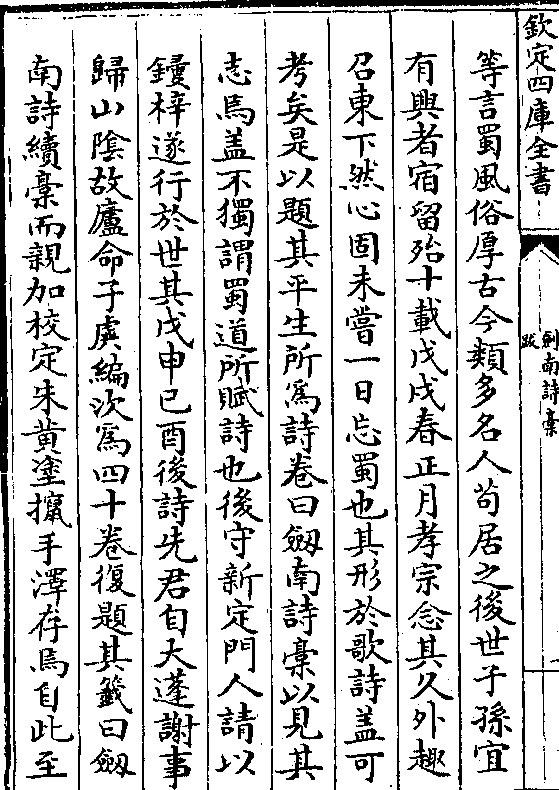 欽定四庫全書
劍南詩稾
跋
等言蜀風俗厚古今類多名人茍居之後世子孫宜
有興者宿留殆十載戊戌春正月孝宗念其久外趣
召東下然心固未嘗一日忘蜀也其形於歌詩盖可
考矣是以題其平生所爲詩卷曰劔南詩稾以見其
志焉盖不獨謂蜀道所賦詩也後守新定門人請以
鋟梓遂行於世其戊申已酉後詩先君自大蓬謝事
歸山隂故廬命子虡編次爲四十卷復題其籖曰劔
南詩續稾而親加校定朱黄塗攛手澤存焉自此至